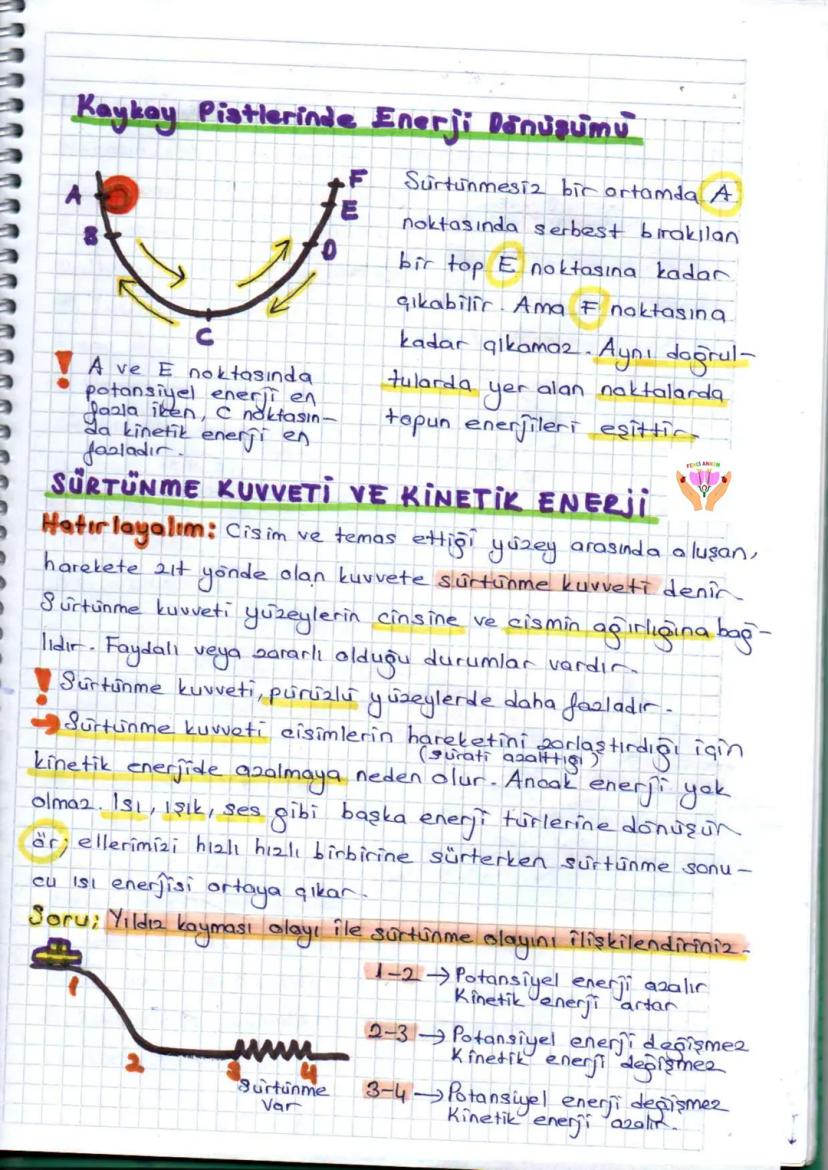 Kaykay Pistlerinde Enerji Dönüşümü
A
B
C
D
E
F
Sürtünmesiz bir ortamda A
noktasında serbest bırakılan
bir top E noktasına kadar
çıkabilir. Ama F noktasına
kadar çıkamaz. Aynı doğrul-
tularda yer alan noktalarda
topun enerjileri eşittir.
! A ve E noktasında
potansiyel enerji en
fazla iken, C noktasın-
da kinetik enerji en
fazladır.
FENCİ ANNEM
SÜRTÜNME KUVVETİ VE KİNETİK ENERJİ
Hatırlayalım: Cisim ve temas ettiği yüzey arasında oluşan,
harekete zıt yönde olan kuvvete sürtünme kuvveti denir.
Sürtünme kuvveti yüzeylerin cinsine ve cismin ağırlığına bağ-
lıdır. Faydalı veya zararlı olduğu durumlar vardır.
! Sürtünme kuvveti, pürüzlü yüzeylerde daha fazladır.
→ Sürtünme kuvveti cisimlerin hareketini zorlaştırdığı için
(sürati azalttığı)
kinetik enerjide azalmaya neden olur. Ancak enerji yok
olmaz. Isı, ışık, ses gibi başka enerji türlerine dönüşür
ör; ellerimizi hızlı hızlı birbirine sürterken sürtünme sonu-
cu ısı enerjisi ortaya çıkar.
Soru; Yıldız kayması olayı ile sürtünme olayını ilişkilendiriniz.
1
2
3
4
Sürtünme
var
1-2 → Potansiyel enerji azalır
Kinetik enerji artar
2-3 → Potansiyel enerji değişmez
Kinetik enerji değişmez
3-4 → Potansiyel enerji değişmez
Kinetik enerji azalır.